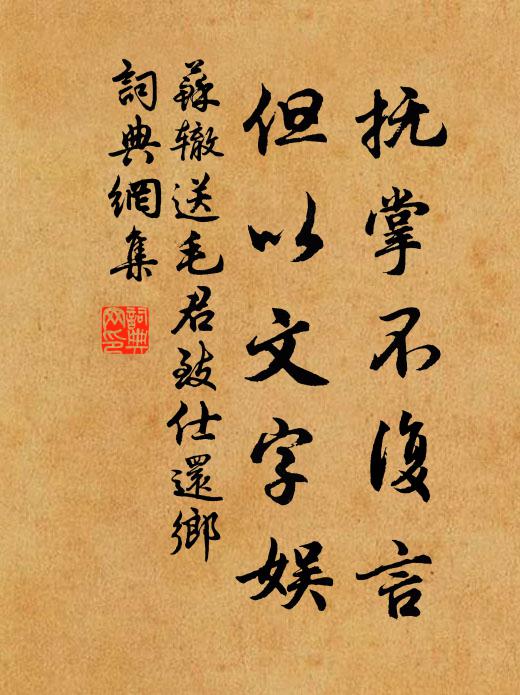 抚掌不復言
但以文字娱
蘇辙送毛君致仕還鄉
詞典網集
詞典網印